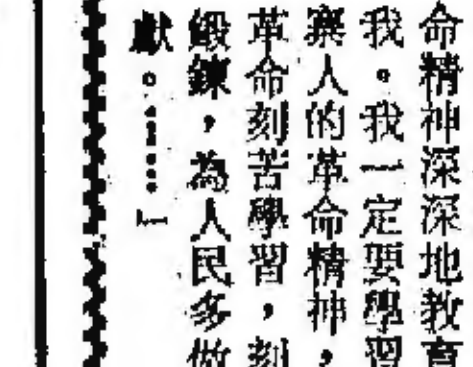 命精神深深地教育
我。我一定要學習
寨人的革命精神，
革命刻苦學習，刻
鍛鍊，為人民多做
獻。……」